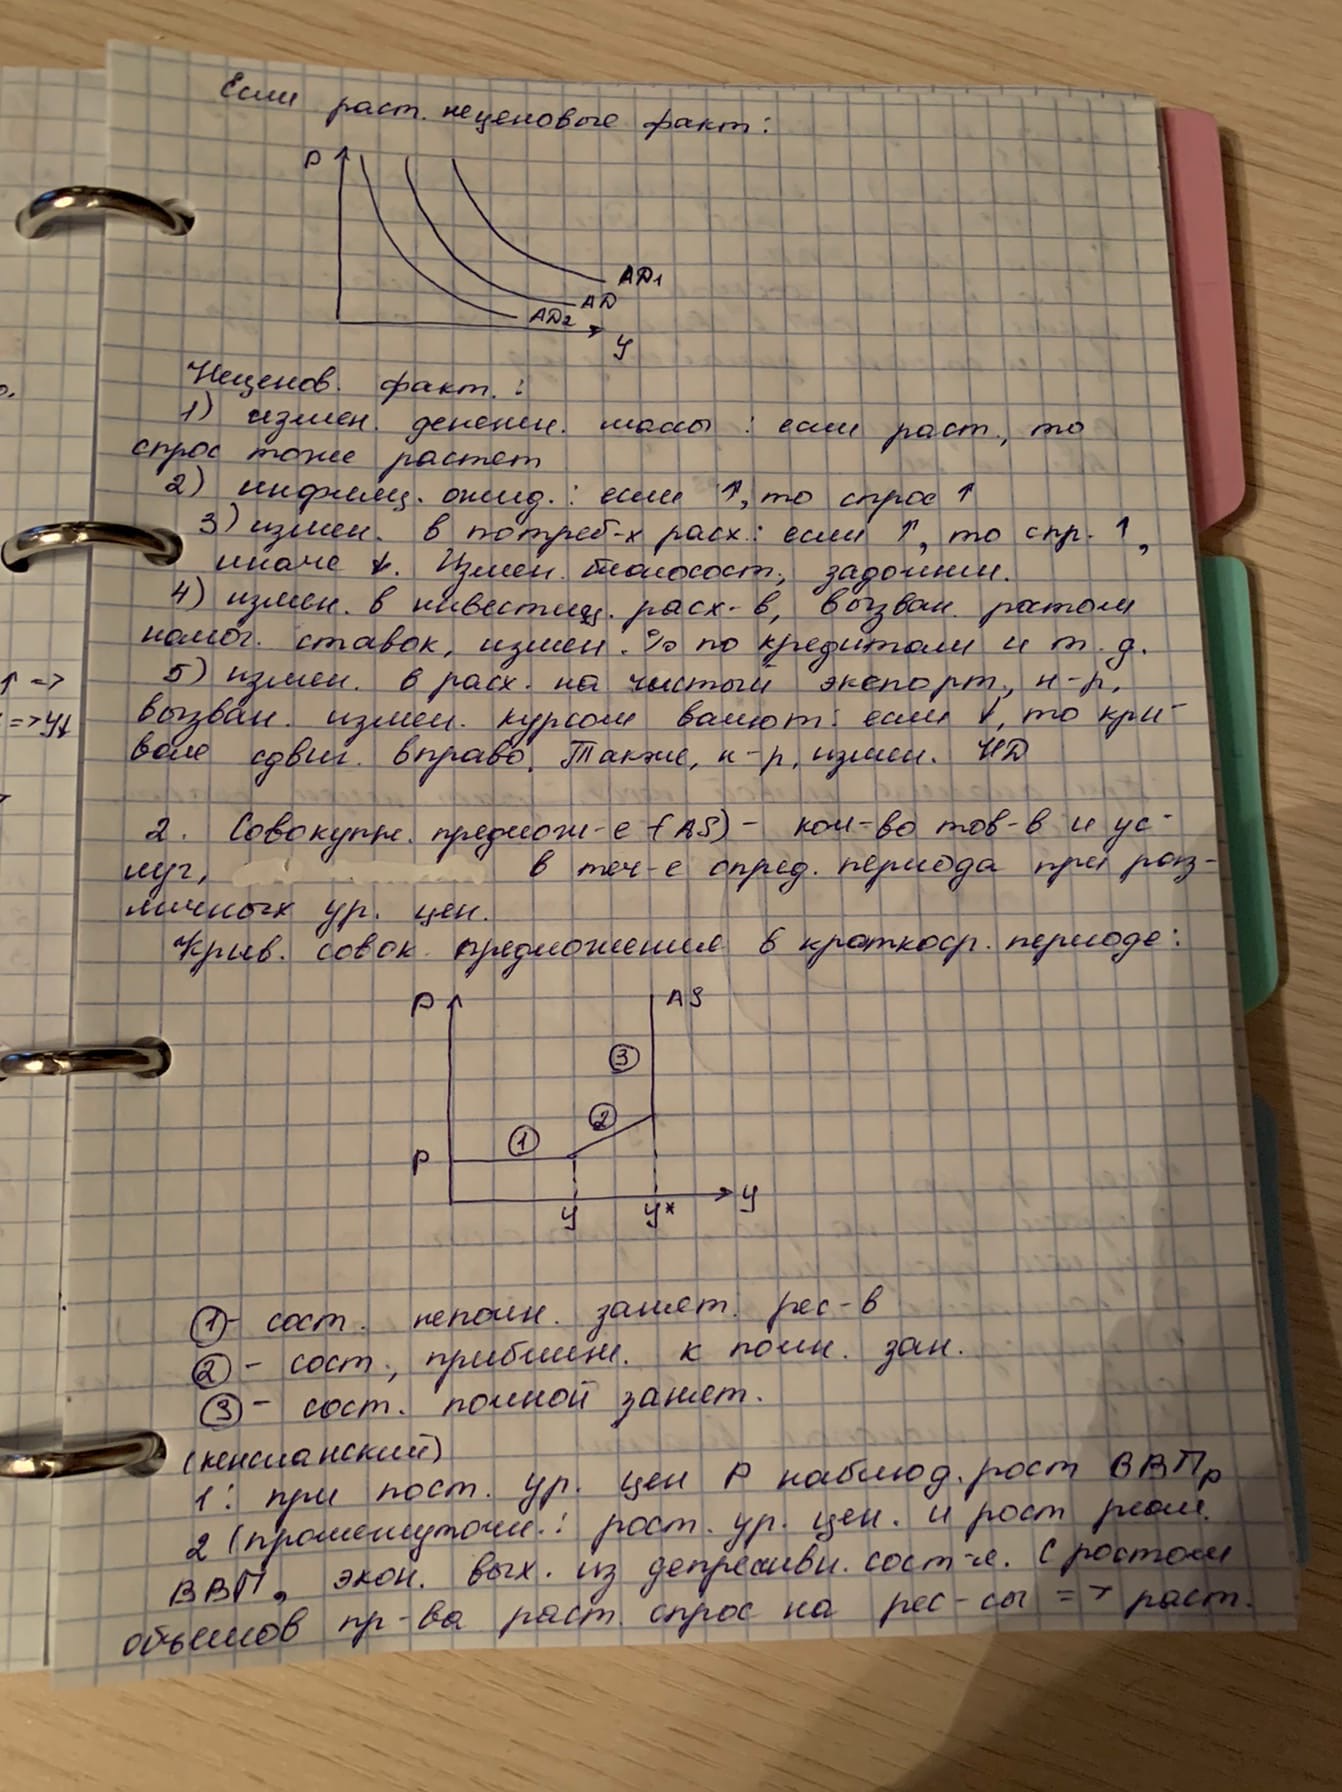 Если раст. неценовые факт:
P
AD1
AD
AD2
y
Неценов. факт.:
1) измен. денежн. массы: если раст., то
спрос тоже растет
2) инфляц. ожид.: если ↑, то спрос ↑
3) измен. в потреб-х расх.: если ↑, то спр. ↑,
иначе ↓. Измен. благосост., задолжн.
4) измен. в инвестиц. расх-в, вызван. ростом
налог. ставок, измен. % по кредитам и т.д.
5) измен. в расх. на чистый экспорт, н-р,
вызван. измен. курсом валют: если ↓, то кри-
вая сдвиг. вправо. Также, н-р, измен. НД
2. Совокупн. предлож-е (AS) - кол-во тов-в и ус-
луг, в теч-е опред. периода при раз-
личных ур. цен.
Крив. совок. предложения в краткоср. периоде:
P
AS
3
2
1
P
y
y
y*
1 - сост. неполн. занят. рес-в
2 - сост., приближ. к полн. зан.
3 - сост. полной занят.
(кенсианский)
1: при пост. ур. цен P наблюд. рост ВВПр
2 (промежуточн.: рост. ур. цен. и рост реал.
ВВП, экон. вых. из депрессивн. сост-я. С ростом
объемов пр-ва раст. спрос на рес-сы => раст.
↑ =>
=> y↓